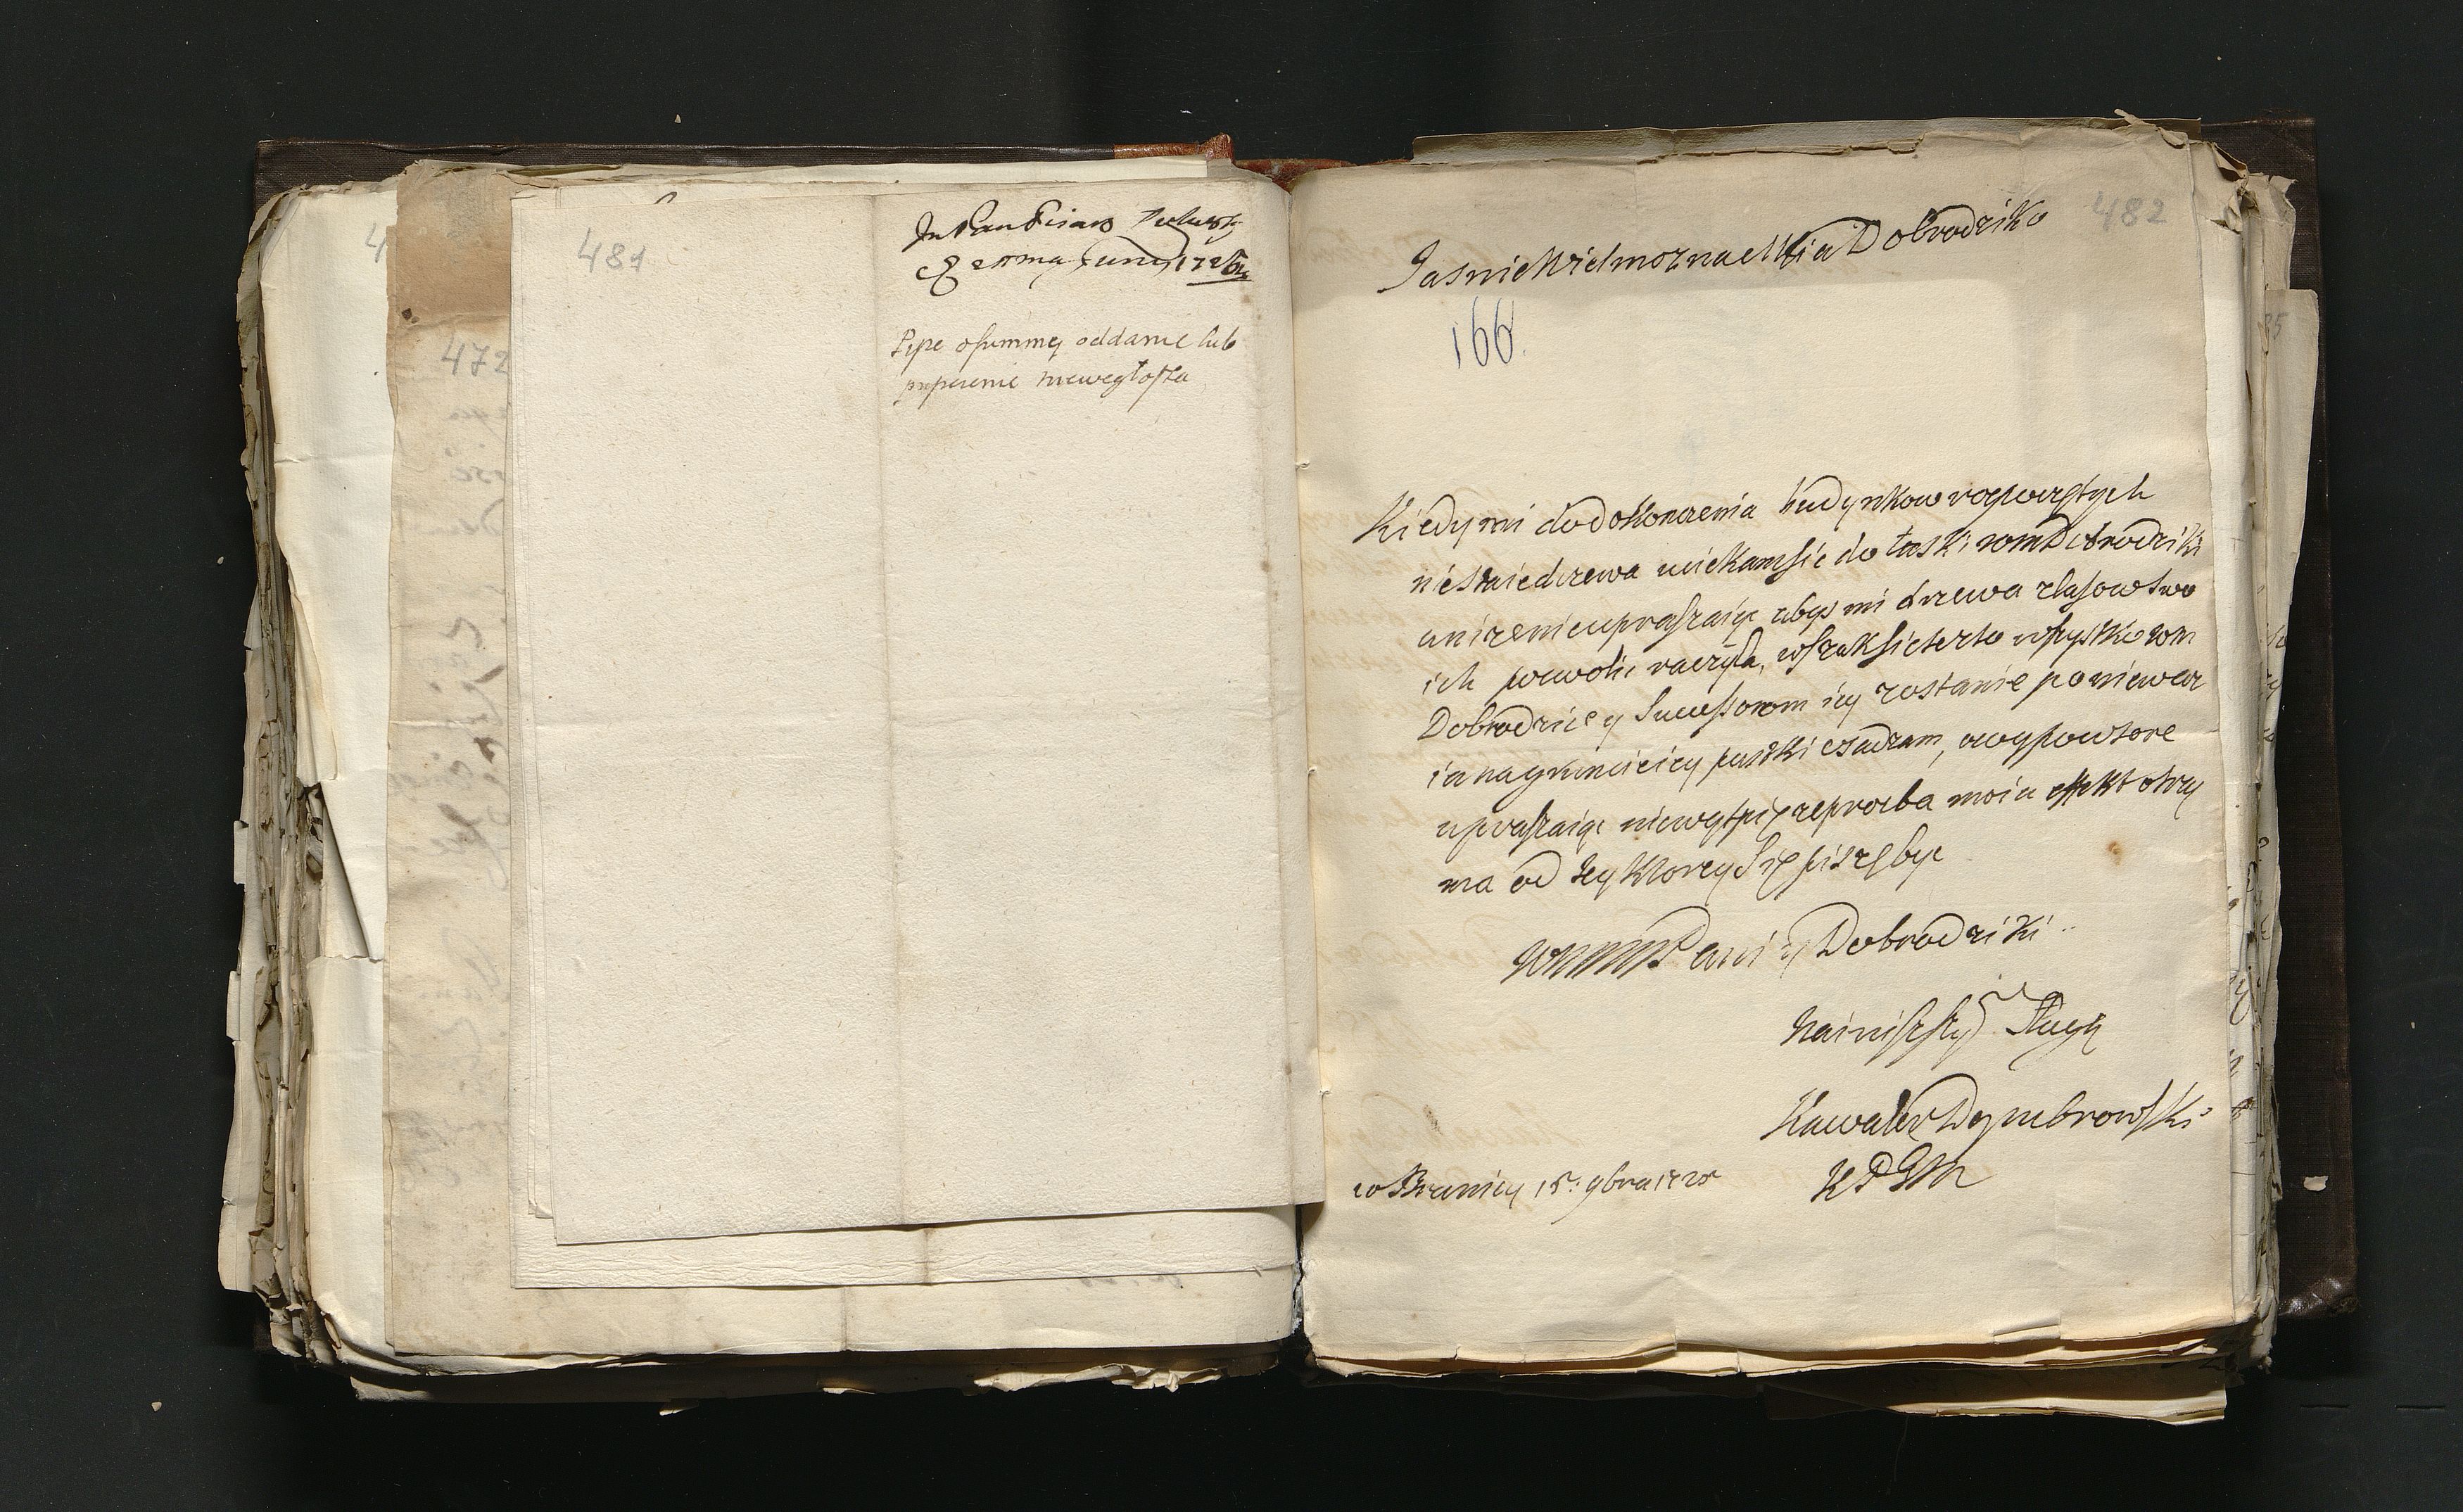 481
Jm Pan Pisarz
Pisze o summę oddanie lub
482
Jasnie Wielmozna Mia Dobrodziko
166
Kiedy mi do dokonczenia budynkow rospoczętych
niestaie drzewa uciekam sie do łaski wm Dobrodziki
unizenie upraszaiąc abys mi drzewa z lasow swo
ich pozwolic raczyła, wszak sie to wszystko wm
Dobrodzice y Sucessorom iey zostanie poniewaz
ia na gruncie iey pustki osadzam, o co y powtore
upraszaiąc niewątpię ze prozba moia effekt otrzy
ma od tey ktorey się piszę byc
WMM Pani y Dobrodziki
Nainiszszy Sługą
Kawaler Dąmbrowski
KPGM
w Branicy 15: 9bra 1725
472